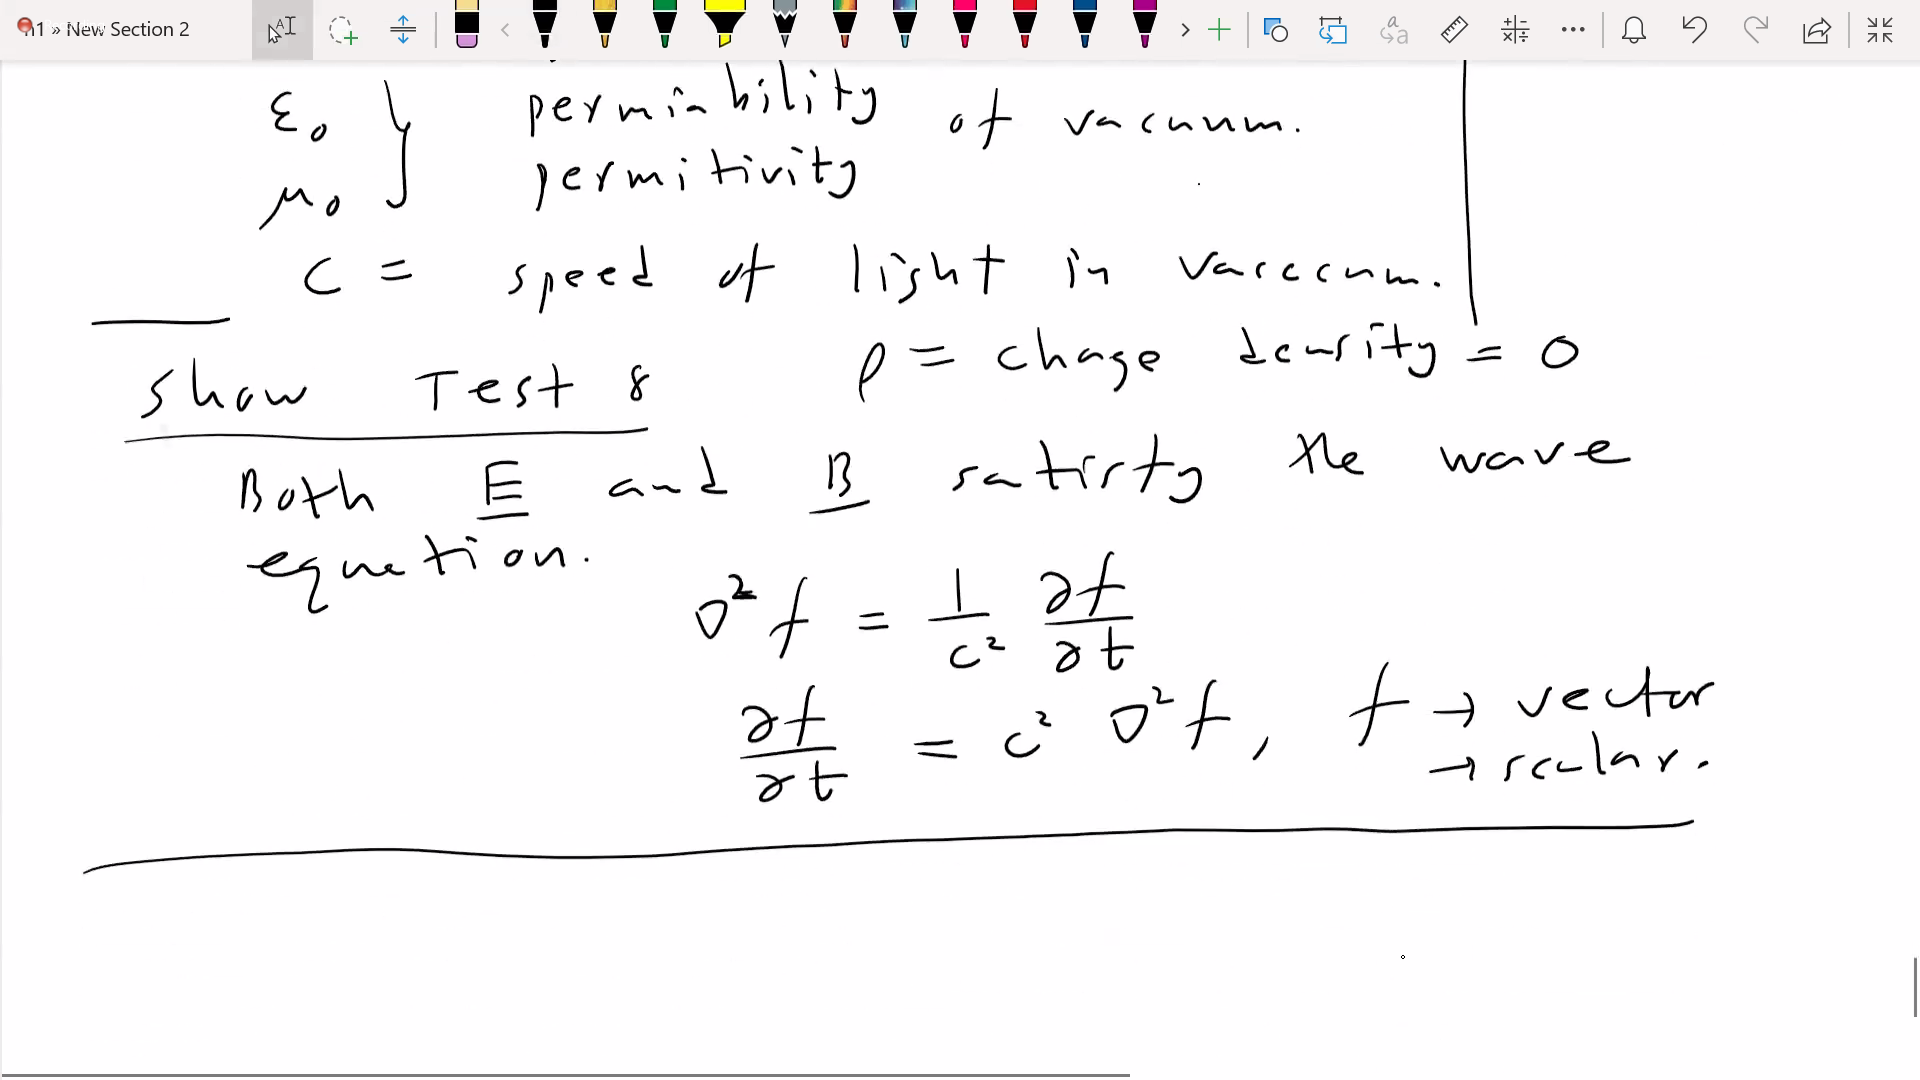 n1 » New Section 2
ε₀ } perminbility of vacuum.
μ₀ permitivity
C = speed of light in vaccum.
ρ = chage density = 0
Show Test 8
Both E and B satisfy the wave
equation.
∇² f = 1/c² ∂f/∂t
∂f/∂t = c² ∇² f, f → vector
→ scalar.